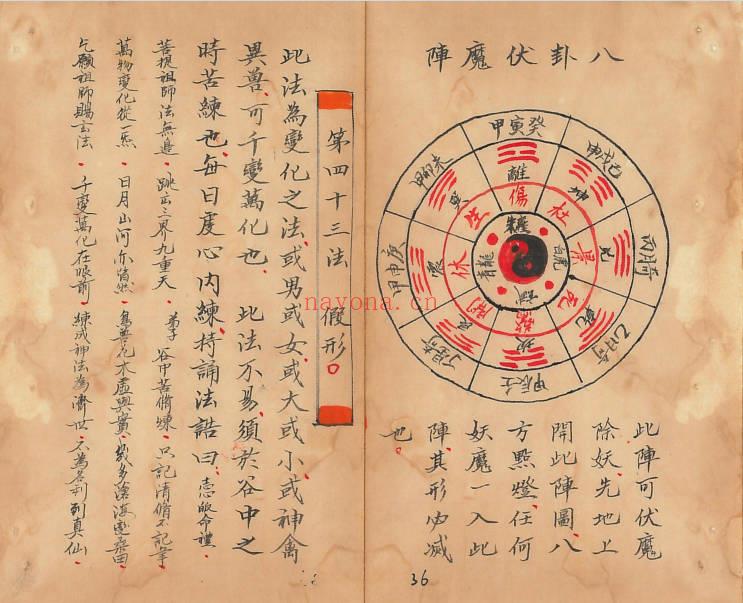 八卦伏魔陣
甲寅癸
甲戌己
丙月奇
乙日奇
甲辰壬
丁星奇
甲申庚
離
坤
兌
乾
坎
艮
震
巽
傷
杜
景
死
驚
開
伏
生
白虎
青龍
此陣可伏魔
除妖先地上
開此陣圖八
方點燈任何
妖魔一入此
陣其形必滅
也
36
第四十三法 假形
此法為變化之法或男或女或大或小或神禽
異兽可千變萬化也 此法不易須於谷中之
時苦練也每日虔心内練持誦法誥曰 志皈命禮
菩提祖師法無邊 跳出三界九重天 弟子谷中苦脩煉 只記清脩不記年
萬物變化從一炁 日月山河亦猶然 鳥兽花木虛與實 幾多滄海變桑田
乞願祖師賜玄法 千變萬化在眼前 煉成神法為濟世 不為名利列真仙
nayona.cn